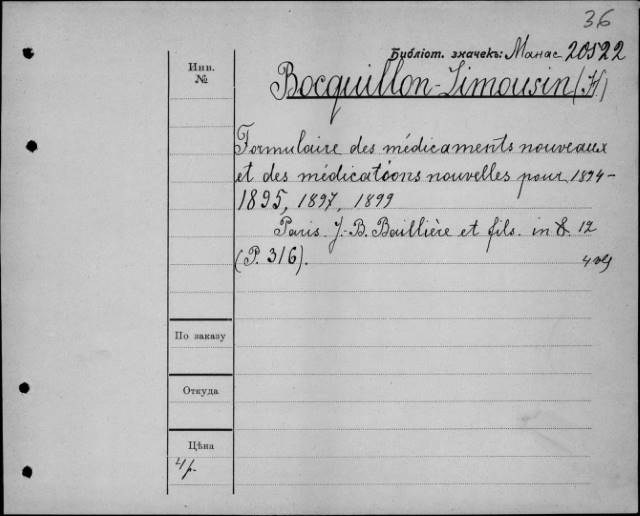 36
Библіот. значекъ: Манас 20522
Инв.
№
Bocquillon-Limousin (H)
Formulaire des médicaments nouveaux
et des médications nouvelles pour 1894-
1895, 1897, 1899
Paris. J.-B. Baillière et fils. in 8. 12
(P. 316).
По заказу
Откуда
Цѣна
4р.